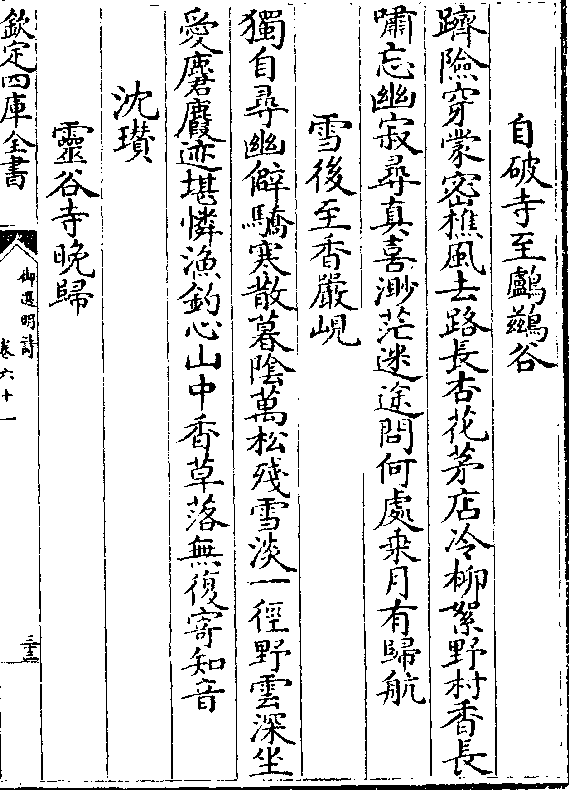 自破寺至鸕鷀谷
躋險穿蒙密樵風去路長杏花茅店冷柳絮野村香長
嘯忘幽寂尋真喜渺茫迷途問何處乗月有歸航
雪後至香嚴峴
獨自尋幽僻驕寒散暮陰萬松殘雪淡一徑野雲深坐
愛麏麚迹堪憐漁釣心山中香草落無復寄知音
沈瓚
靈谷寺晚歸
欽定四庫全書
御選明詩
卷六十一
三十三